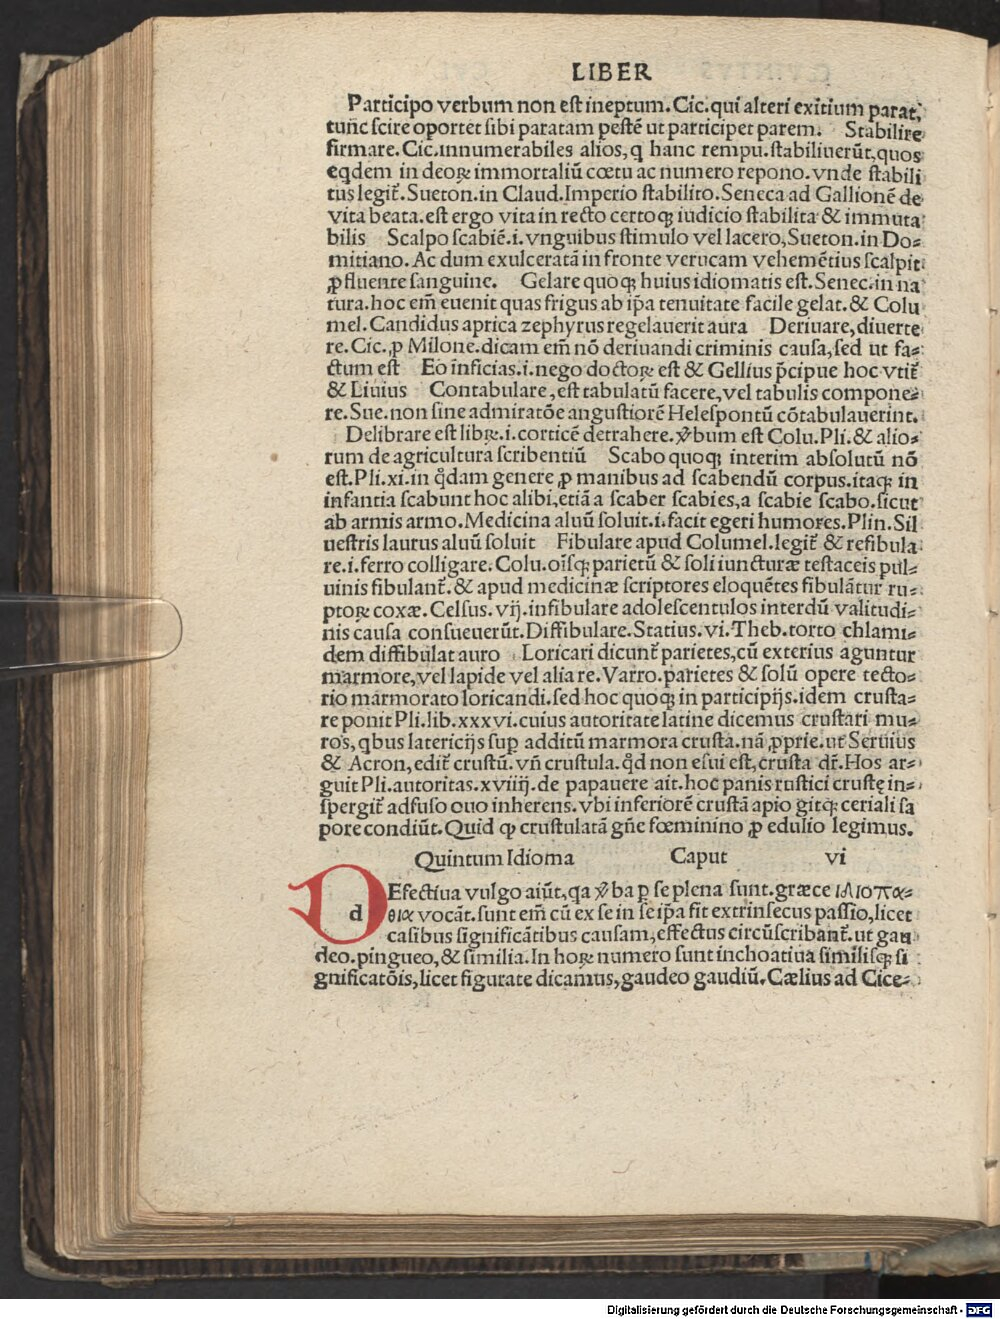 LIBER
Participo verbum non eſt ineptum. Cic. qui alteri exitium parat,
tunc ſcire oportet ſibi paratam peſtē ut participet parem. Stabilire
firmare. Cic. innumerabiles alios, q hanc rempu. ſtabiliuerūt, quos
eqdem in deoꝝ immortaliū cœtu ac numero repono. vnde ſtabili
tus legit̄. Sueton. in Claud. Imperio ſtabilito. Seneca ad Gallionē de
vita beata. eſt ergo vita in recto certoqꝫ iudicio ſtabilita & immuta
bilis Scalpo ſcabiē. i. vnguibus ſtimulo vel lacero, Sueton. in Do⸗
mitiano. Ac dum exulceratā in fronte verucam vehemētius ſcalpit
ꝓfluente ſanguine. Gelare quoqꝫ huius idiomatis eſt. Senec. in na
tura. hoc em̄ euenit quas frigus ab ip̄a tenuitate facile gelat. & Colu
mel. Candidus aprica zephyrus regelauerit aura Deriuare, diuerte
re. Cic. ꝓ Milone. dicam em̄ nō deriuandi criminis cauſa, ſed ut fa⸗
ctum eſt Eo inficias. i. nego doctoꝝ eſt & Gellius p̄cipue hoc vtit̄
& Liuius Contabulare, eſt tabulatū facere, vel tabulis compone⸗
re. Sue. non ſine admiratōe anguſtiorē Heleſpontū cōtabulauerint.
Delibrare eſt libꝝ. i. corticē detrahere. v̄bum eſt Colu. Pli. & alio⸗
rum de agricultura ſcribentiū Scabo quoqꝫ interim abſolutū nō
eſt. Pli. xi. in q̊dam genere ꝓ manibus ad ſcabendū corpus. itaqꝫ in
infantia ſcabunt hoc alibi, etiā a ſcaber ſcabies, a ſcabie ſcabo. ſicut
ab armis armo. Medicina aluū ſoluit. i. facit egeri humores. Plin. Sil
ueſtris laurus aluū ſoluit Fibulare apud Columel. legit̄ & refibula
re. i. ferro colligare. Colu. oīſqꝫ parietū & ſoli iuncturæ teſtaceis pul⸗
uinis fibulant̄. & apud medicinæ ſcriptores eloquētes fibulātur ru⸗
ptoꝝ coxæ. Celſus. vij. infibulare adoleſcentulos interdū valitudi⸗
nis cauſa conſueuerūt. Diffibulare. Statius. vi. Theb. torto chlami⸗
dem diffibulat auro Loricari dicunt̄ parietes, cū exterius aguntur
marmore, vel lapide vel alia re. Varro. parietes & ſolū opere tecto⸗
rio marmorato loricandi. ſed hoc quoqꝫ in participijs. idem cruſta⸗
re ponit Pli. lib. xxxvi. cuius autoritate latine dicemus cruſtari mu⸗
ros, qbus latericijs ſuꝑ additū marmora cruſta. nā ꝓprie. ut Seruius
& Acron, edit̄ cruſtū. vn̄ cruſtula. q̊d non eſui eſt, cruſta dr̄. Hos ar⸗
guit Pli. autoritas. xviiij. de papauere ait. hoc panis ruſtici cruſtę in⸗
ſpergit̄ adfuſo ouo inherens. vbi inferiorē cruſtā apio gitqꝫ ceriali ſa
pore condiūt. Quid ꝙ cruſtulatā gn̄e fœminino ꝓ edulio legimus.
Quintum Idioma Caput vi
DEfectiua vulgo aiūt, qa v̄ba ꝑ ſe plena ſunt. græce ιδιοπα⸗
d θια vocāt. ſunt em̄ cū ex ſe in ſe ip̄a fit extrinſecus paſſio, licet
caſibus ſignificātibus cauſam, effectus circūſcribant̄. ut gau
deo. pingueo, & ſimilia. In hoꝝ numero ſunt inchoatiua ſimiliſqꝫ ſi
gnificatōis, licet figurate dicamus, gaudeo gaudiū. Cælius ad Cice⸗
Digitalisierung gefördert durch die Deutsche Forschungsgemeinschaft - DFG